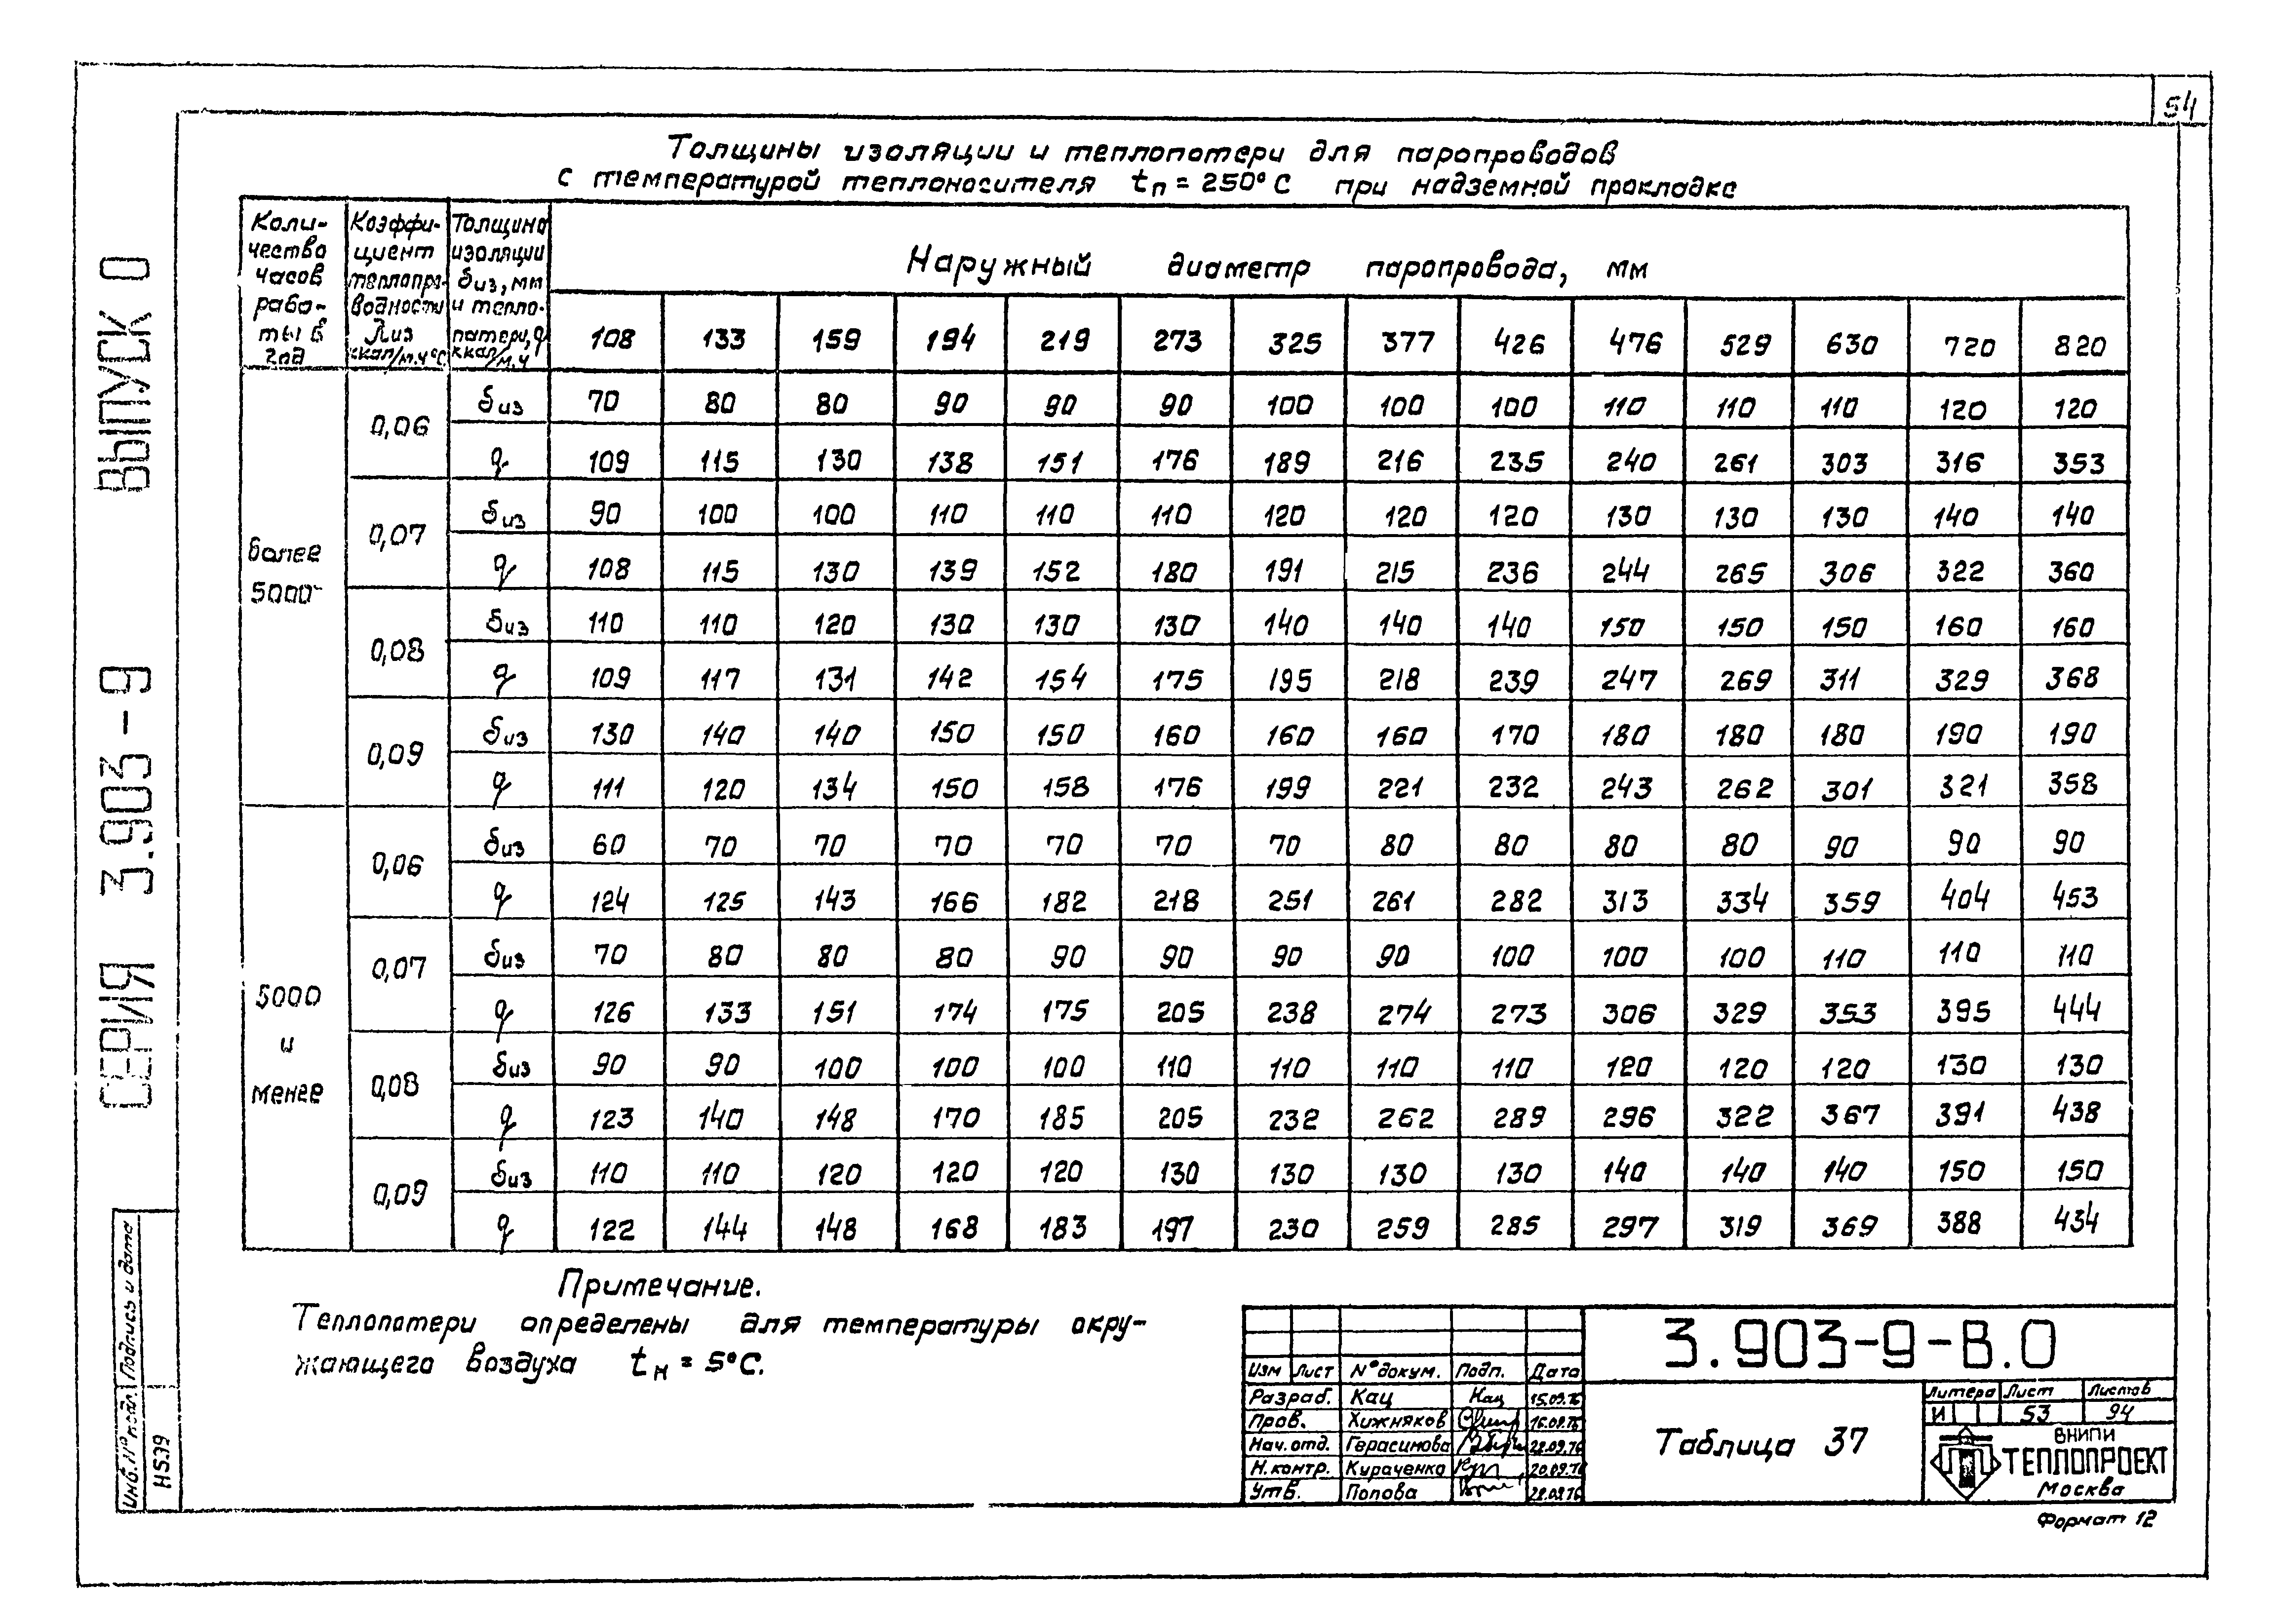 54
Толщины изоляции и теплопотери для паропроводов
с температурой теплоносителя tп = 250°С при надземной прокладке
Коли-
чество
часов
рабо-
ты в
год
Коэффи-
циент
теплопро-
водности
λиз
ккал/м.ч°С
Толщина
изоляции
δиз, мм
и тепло-
потери, q
ккал/м.ч
Наружный диаметр паропровода, мм
108 133 159 194 219 273 325 377 426 476 529 630 720 820
более
5000
0,06
δиз 70 80 80 90 90 90 100 100 100 110 110 110 120 120
q 109 115 130 138 151 176 189 216 235 240 261 303 316 353
0,07
δиз 90 100 100 110 110 110 120 120 120 130 130 130 140 140
q 108 115 130 139 152 180 191 215 236 244 265 306 322 360
0,08
δиз 110 110 120 130 130 130 140 140 140 150 150 150 160 160
q 109 117 131 142 154 175 195 218 239 247 269 311 329 368
0,09
δиз 130 140 140 150 150 160 160 160 170 180 180 180 190 190
q 111 120 134 150 158 176 199 221 232 243 262 301 321 358
5000
и
менее
0,06
δиз 60 70 70 70 70 70 70 80 80 80 80 90 90 90
q 124 125 143 166 182 218 251 261 282 313 334 359 404 453
0,07
δиз 70 80 80 80 90 90 90 90 100 100 100 110 110 110
q 126 133 151 174 175 205 238 274 273 306 329 353 395 444
0,08
δиз 90 90 100 100 100 110 110 110 110 120 120 120 130 130
q 123 140 148 170 185 205 232 262 289 296 322 367 391 438
0,09
δиз 110 110 120 120 120 130 130 130 130 140 140 140 150 150
q 122 144 148 168 183 197 230 259 285 297 319 369 388 434
Примечание.
Теплопотери определены для температуры окру-
жающего воздуха tн = 5°С.
СЕРИЯ 3.903-9 ВЫПУСК 0
Инв.№ подл. Подпись и дата
Н539
3.903-9-В.0
Изм Лист N° докум. Подп. Дата
Разраб. Кац Кац 15.09.76
Пров. Хижняков 16.09.76
Нач.отд. Герасимова 22.09.76
Н.контр. Кураченко 20.09.76
Утв. Попова 22.09.76
Таблица 37
Литера Лист Листов
И 53 94
ВНИПИ
ТЕПЛОПРОЕКТ
Москва
Формат 12